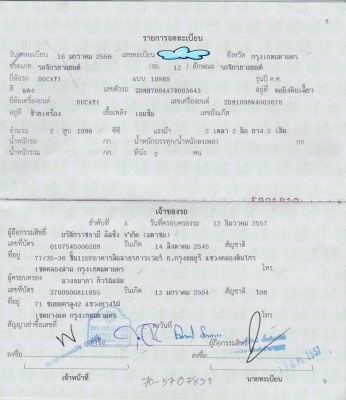 8
รายการจดทะเบียน
วันจดทะเบียน 16 มกราคม 2556 เลขทะเบียน จังหวัด กรุงเทพมหานคร
ประเภท รถจักรยานยนต์ (รย. 12 ) ลักษณะ รถจักรยานยนต์
ยี่ห้อรถ DUCATI แบบ 1098S รุ่นปี ค.ศ.
สี แดง เลขตัวรถ อยู่ที่ คอยึดคันเลี้ยว
ยี่ห้อเครื่องยนต์ DUCATI เลขเครื่องยนต์ ZDM1098W4003676
อยู่ที่ ซ้ายเครื่อง เชื้อเพลิง เบนซิน เลขถังแก๊ส
จำนวน 2 สูบ 1098 ซีซี แรงม้า 2 เพลา 2 ล้อ ยาง 2 เส้น
น้ำหนักรถ กก. น้ำหนักบรรทุก/น้ำหนักลงเพลา กก.
น้ำหนักรวม กก. ที่นั่ง 2 คน
เจ้าของรถ
ลำดับที่ 3 วันที่ครอบครองรถ 12 ธันวาคม 2557
ผู้ถือกรรมสิทธิ์ บริษัทราชธานี ลิสซิ่ง จำกัด (มหาชน)
เลขที่บัตร 0107545000209 วันเกิด 14 สิงหาคม 2545 สัญชาติ
ที่อยู่ 77/35-36 ชั้น11UPอาคารสินสาธรทาวเวอร์ ถ.กรุงธนบุรี แขวงคลองต้นไทร
เขตคลองสาน กรุงเทพมหานคร โทร.
ผู้ครอบครอง
เลขที่บัตร 3700500811955 วันเกิด 13 มกราคม 2504 สัญชาติ ไทย
ที่อยู่
เขตบางแค กรุงเทพมหานคร โทร.
สัญญาเช่าซื้อเลขที่ ลงวันที่
ผู้ถือกรรมสิทธิ์
ลงชื่อ ลงชื่อ
เจ้าหน้าที่ นายทะเบียน
9